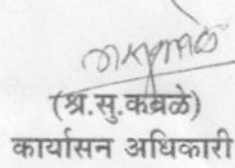 (श्र.सु.कबळे)
कार्यासन अधिकारी